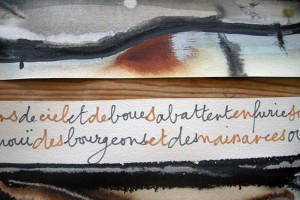 ns de ciel et de boues abattent en furie su
nouï des bourgeons et des mainances ou